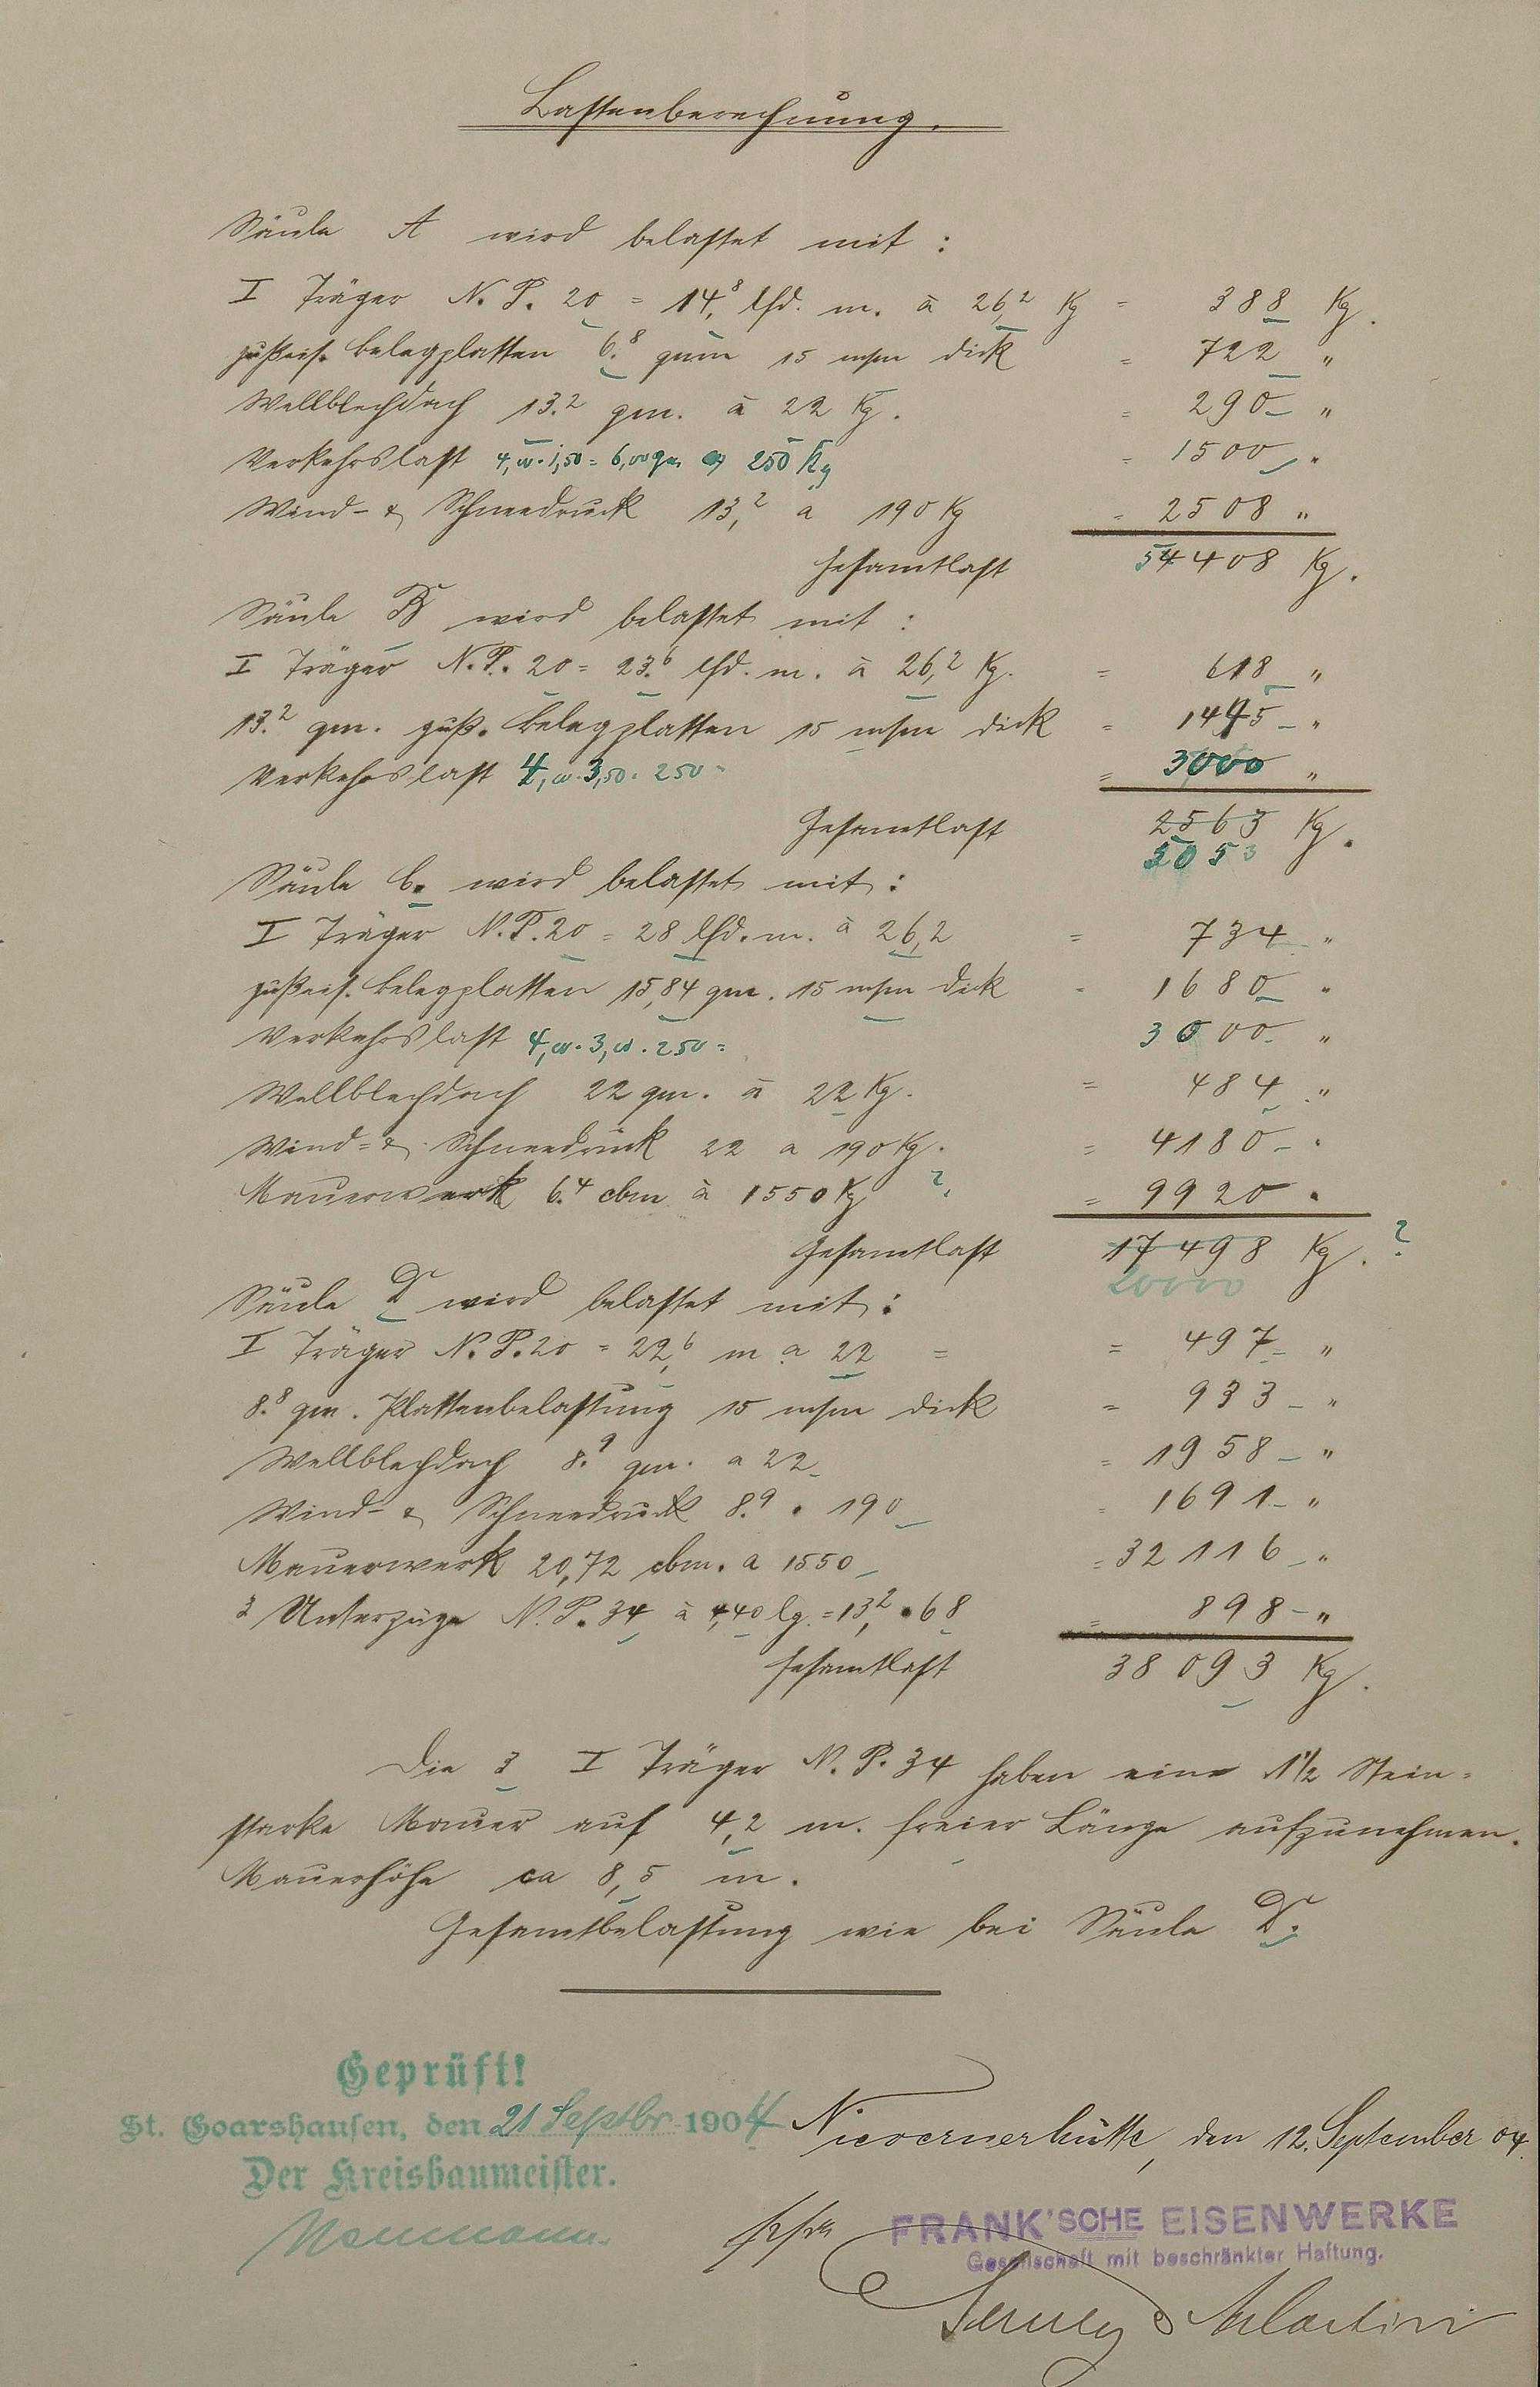 Lastenberechnung.
Säule A wird belastet mit :
I Träger N. P. 20 = 14,8 lfd. m. à 26,2 Kg = 388 Kg.
gußeis. Belagplatten 6.8 qm 15 m/m dick = 722 "
Wellblechdach 13.2 qm. à 22 Kg. = 290 "
Verkehrslast 4,00 · 1,50 = 6,00 qm à 250 Kg = 1500 "
Wind- & Schneedruck 13,2 a 190 Kg = 2508 "
Gesamtlast 5408 Kg.
Säule B wird belastet mit :
I Träger N. P. 20 = 23.6 lfd. m. à 26,2 Kg. = 618 "
13.2 qm. guß. Belagplatten 15 m/m dick = 1445 "
Verkehrslast 4,00 · 3,50 · 250 = 3000 "
Gesamtlast 2563 Kg.
5053
Säule C. wird belastet mit :
I Träger N. P. 20 = 28 lfd. m. à 26,2 = 734 "
gußeis. Belagplatten 15,84 qm. 15 m/m dick = 1680 "
Verkehrslast 4,00 · 3,00 · 250 = 3000 "
Wellblechdach 22 qm. à 22 Kg. = 484 "
Wind- & Schneedruck 22 a 190 Kg. = 4180 "
Mauerwerk 6.4 cbm à 1550 Kg ? = 9920 "
Gesamtlast 17498 Kg. ?
20000
Säule D wird belastet mit :
I Träger N. P. 20 = 22,6 m a 22 = = 497 "
8.8 qm. Plattenbelastung 15 m/m dick = 933 "
Wellblechdach 8.9 qm. a 22 = 1958 "
Wind- & Schneedruck 8.9 · 190 = 1691 "
Mauerwerk 20,72 cbm. a 1550 = 32116 "
3 Unterzüge N. P. 34 à 4,40 lg. = 13,2 · 68 = 898 "
Gesamtlast 38093 Kg.
Die 3 I Träger N. P. 34 haben eine 1½ Stein=
starke Mauer auf 4,2 m. freier Länge aufzunehmen.
Mauerhöhe ca 8,5 m.
Gesamtbelastung wie bei Säule D.
Geprüft!
St. Goarshausen, den 21 Septbr 1904
Der Kreisbaumeister.
Nievernerhütte, den 12. September 04.
ppa
FRANK'SCHE EISENWERKE
Gesellschaft mit beschränkter Haftung.
Martini